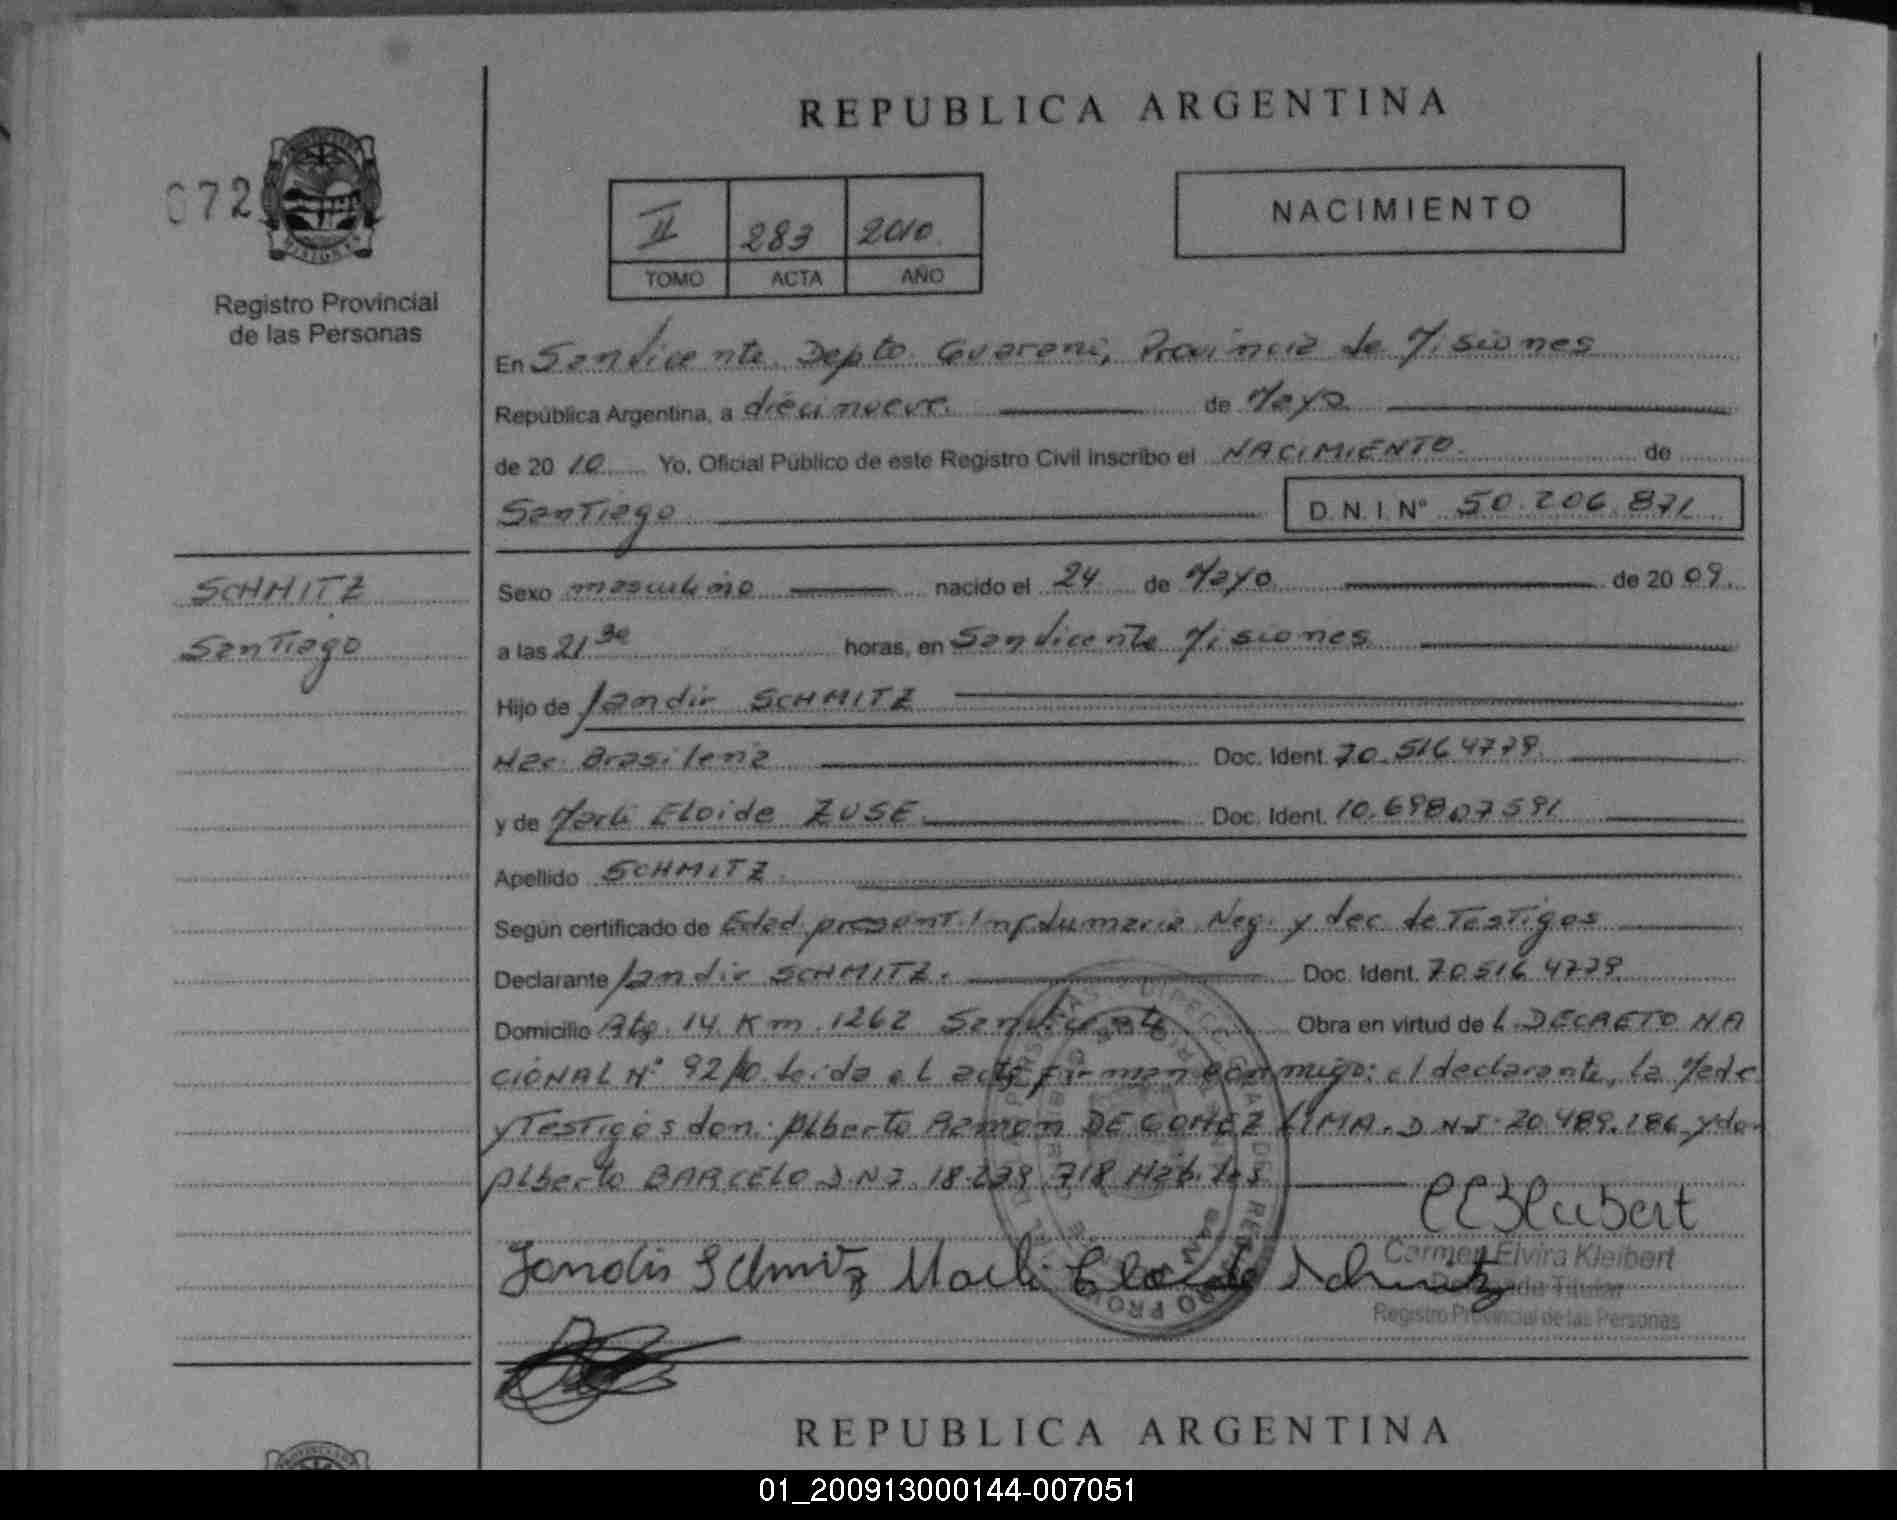 REPUBLICA ARGENTINA
672
Registro Provincial
de las Personas
II 283 2010
TOMO ACTA AÑO
NACIMIENTO
En San Vicente Depto Guarani, Provincia de Misiones
República Argentina, a diecinueve de Mayo
de 20 10 Yo, Oficial Público de este Registro Civil inscribo el NACIMIENTO. de
Santiago D.N.I. Nº 50.206.871
SCHMITZ
Santiago
Sexo masculino nacido el 24 de Mayo de 20 09.
a las 21 30 horas, en San Vicente Misiones
Hijo de Jandir SCHMITZ
Nac. Brasileña Doc. Ident. 70.516 4779
y de Marli Eloide ZUSE Doc. Ident. 10.69807591
Apellido SCHMITZ.
Según certificado de Edad present. Inf. Sumaria Neg. y dec de Testigos
Declarante Jandir SCHMITZ. Doc. Ident. 70.516 4779
Domicilio Rta. 14 Km 1262 San Vicente Obra en virtud de L. DECRETO NA
CIONAL Nº 92/10. Leida el acta firman conmigo: el declarante, la Madre
y Testigos don: Alberto Ramon DE GOMEZ LIMA. D N I 20.489.186 y don
Alberto BARCELO D.N.I 18.239.718 Hábiles
CEKleibert
Jandir Schmitz Marli Eloide Schmitz
Carmen Elvira Kleibert
Delegada Titular
Registro Provincial de las Personas
REPUBLICA ARGENTINA
01_200913000144-007051